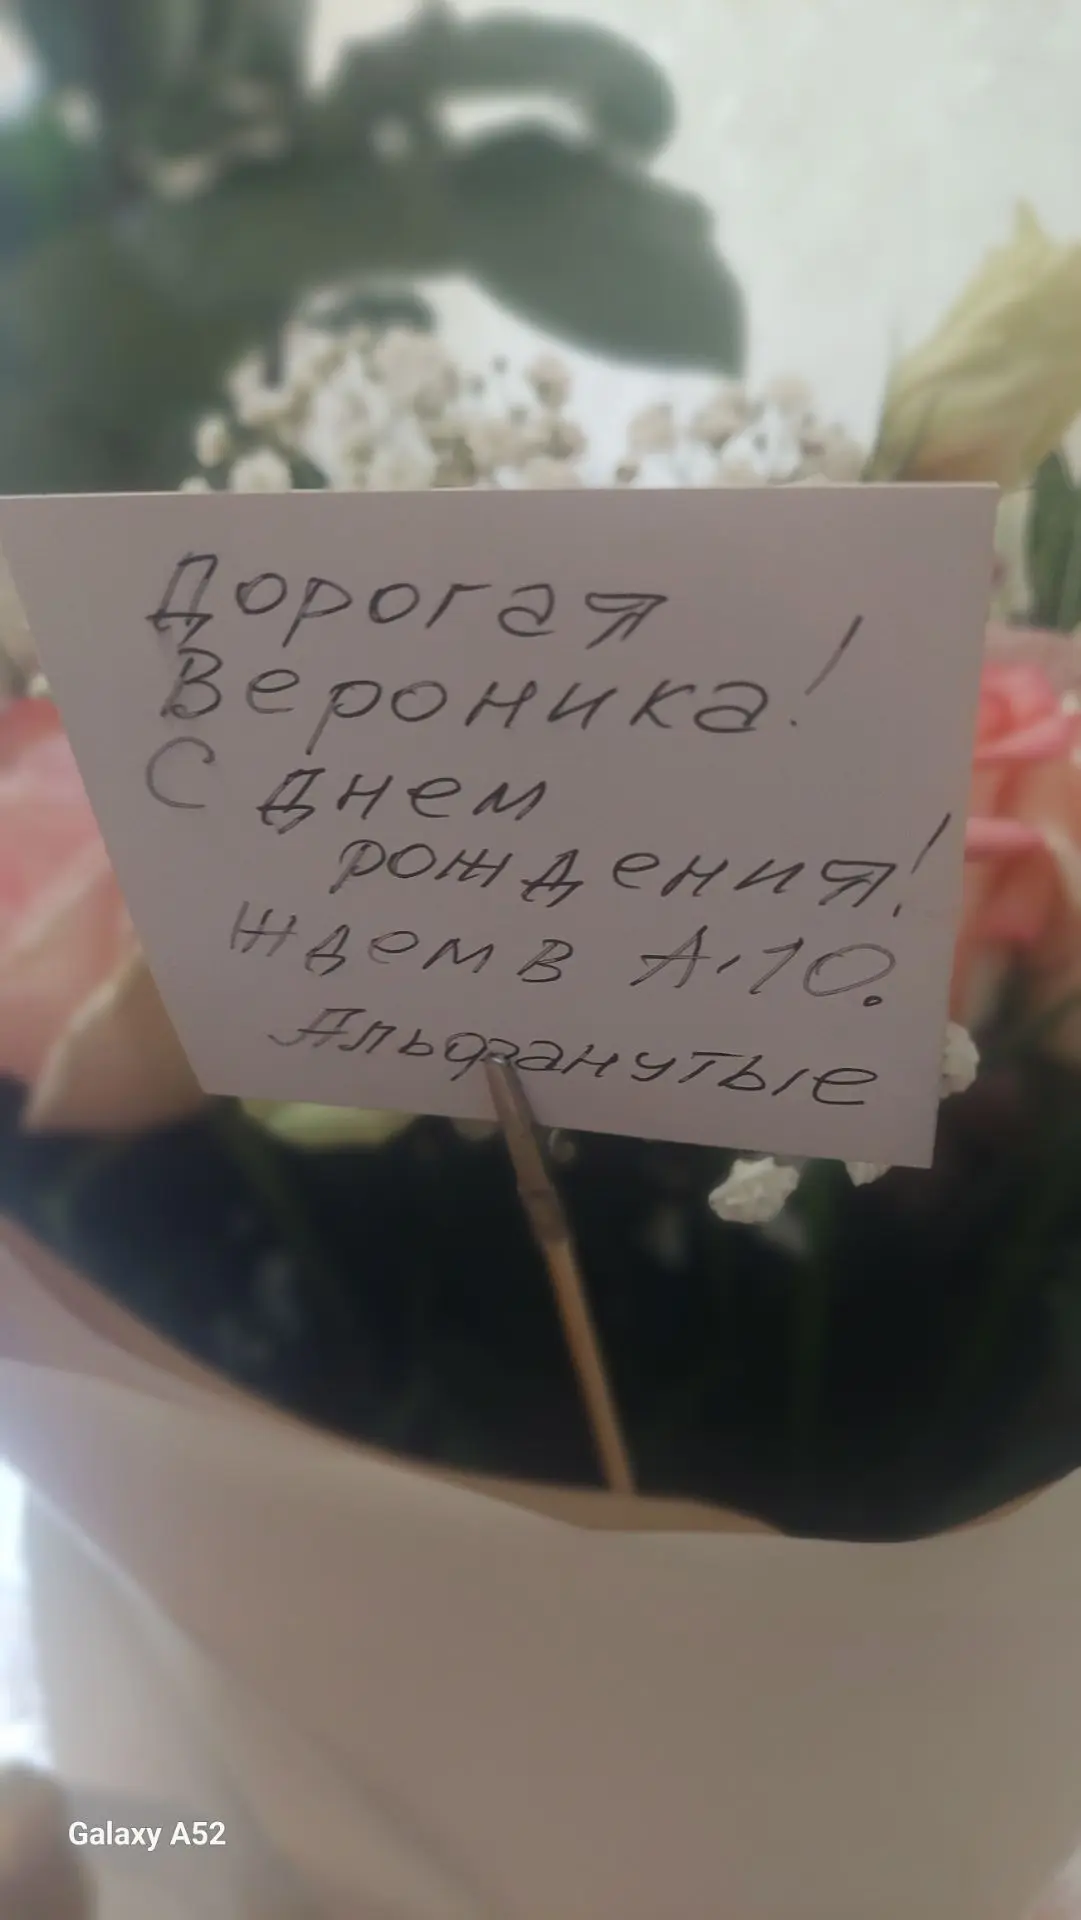 Дорогая
Вероника!
С днем
рождения!
Ждем в А-10.
Альфанутые
Galaxy A52